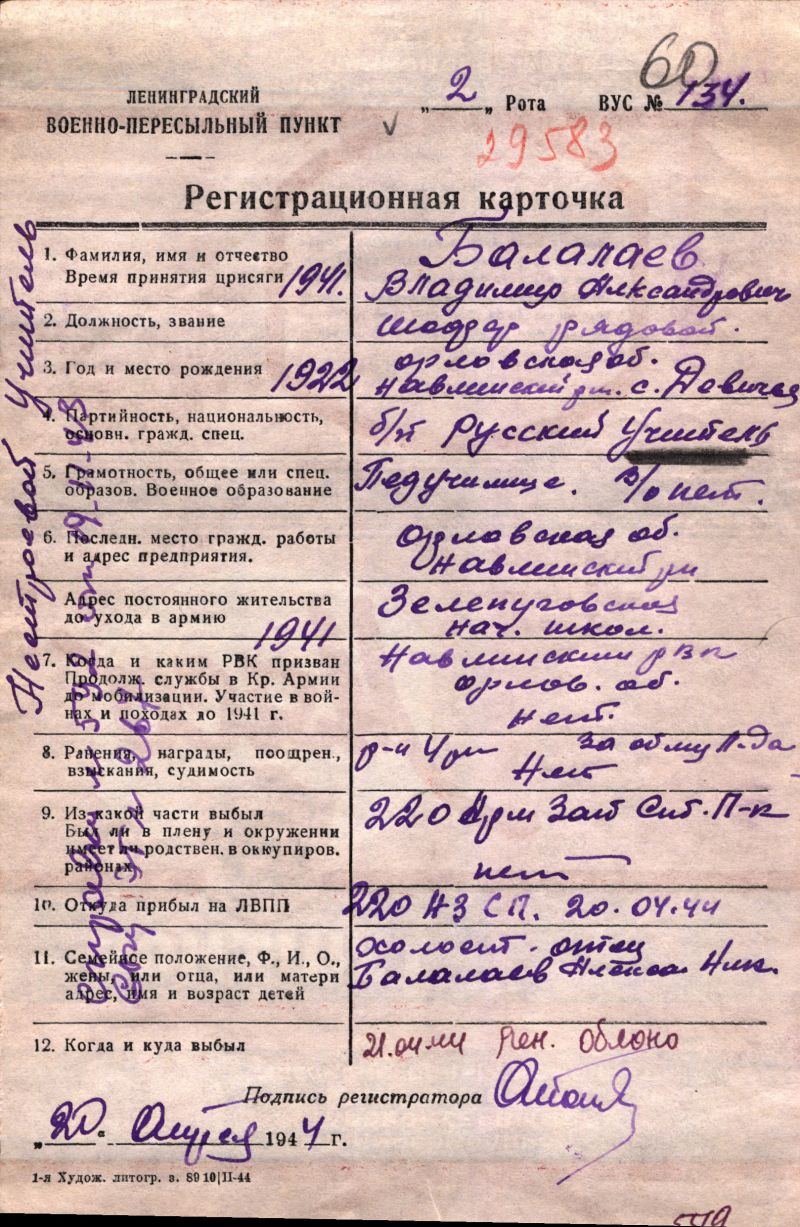 60
ЛЕНИНГРАДСКИЙ
ВОЕННО-ПЕРЕСЫЛЬНЫЙ ПУНКТ
„ 2 „ Рота ВУС № 134.
29583
Регистрационная карточка
1. Фамилия, имя и отчество
Время принятия присяги 1941.
Балалаев
Владимир Александрович
2. Должность, звание
шоффер рядовой.
3. Год и место рождения 1922
орловская об.
навлинский рн. с.
4. Партийность, национальность,
основн. гражд. спец.
б/п Русский Учитель
5. Грамотность, общее или спец.
образов. Военное образование
Педучилище. в/о нет.
6. Последн. место гражд. работы
и адрес предприятия.
орловская об.
навлинский рн
Адрес постоянного жительства
до ухода в армию
1941
нач. школ.
7. Когда и каким РВК призван
Продолж. службы в Кр. Армии
до мобилизации. Участие в вой-
нах и походах до 1941 г.
Навлинским рвк
орлов. об.
нет.
8. Ранения, награды, поощрен.,
взыскания, судимость
За обор Л-да
Нет
9. Из какой части выбыл
Был ли в плену и окружении
имеет ли родствен. в оккупиров.
районах
220 Арм Зап П-к
нет
10. Откуда прибыл на ЛВПП
220 АЗСП. 20.04.44
11. Семейное положение, Ф., И., О.,
жены, или отца, или матери
адрес, имя и возраст детей
холост. отец
Балалаев Алекса. Ник.
12. Когда и куда выбыл
21.04.44 Лен. Облоно
Подпись регистратора
„ 20 „ Апреля 1944 г.
1-я Худож. литогр. з. 8910|II-44
Нестроевой Учитель